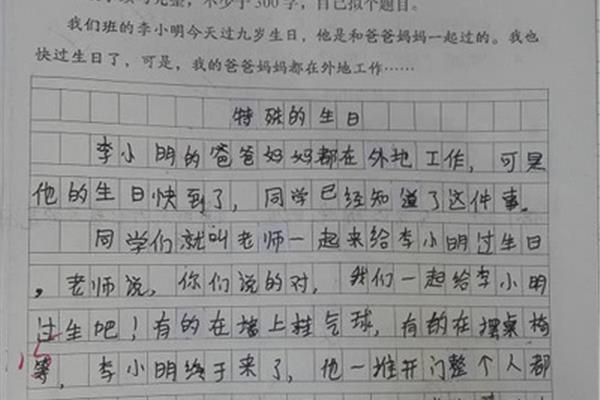 不少于300字，自己拟个题目。
我们班的李小明今天过九岁生日，他是和爸爸妈妈一起过的。我也
快过生日了，可是，我的爸爸妈妈都在外地工作……
特殊的生日
李小明的爸爸妈妈都在外地工作，可是
他的生日快到了，同学已经知道了这件事。
同学们就叫老师一起来给李小明过生日
，老师说，你们说的对，我们一起给李小明
过生吧！有的在墙上挂气球，有的在摆桌椅
等，李小明终于来了，他一推开门整个人都